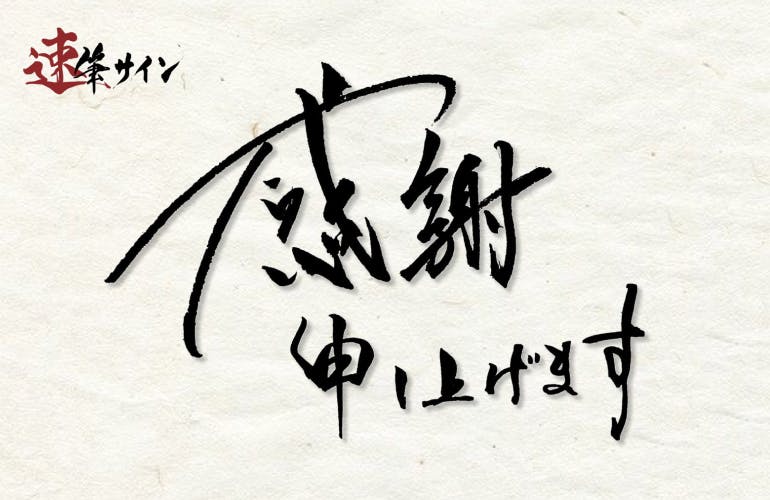 速筆サイン
感謝
申し上げます